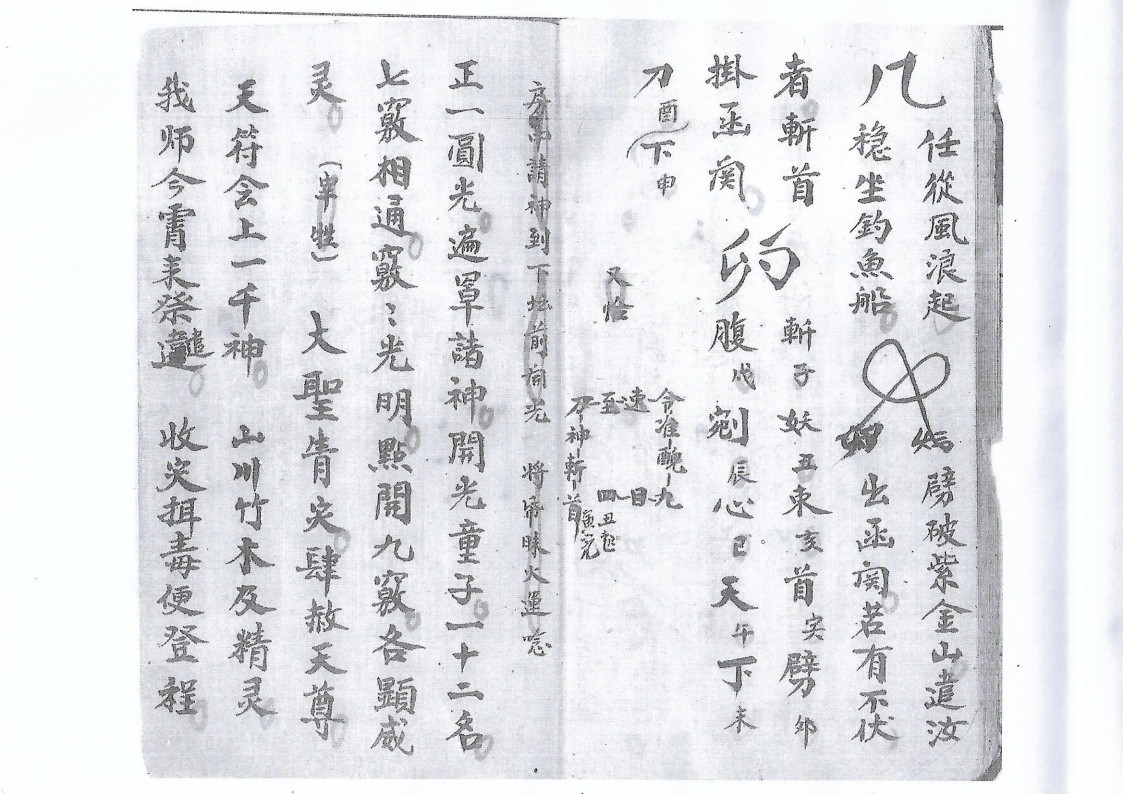 任從風浪起 劈破紫金山遣汝
穏坐釣魚船 出函関若有不伏
者斬首 斬子妖丑束亥首寅劈卯
掛函関 腹戌剜辰心巳天午下未
刀酉下申
又恰
令准醜九
速日
至四丑
刀神斬首寅完
房中請神到下坛前開光 將 昧火運唸
正一圓光遍罩諸神開光童子一十二名
七竅相通竅〻光明點開九竅各顯威
灵 (宰牲) 大聖眚灾肆赦天尊
天符会上一千神 山川竹木及精灵
我师今霄来祭遣 收灾揖毒便登程